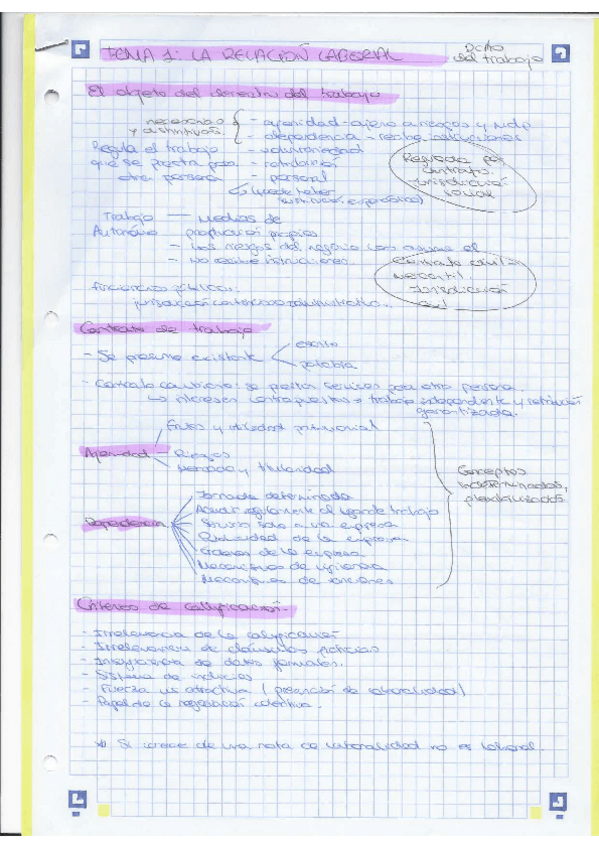 TEMA 1: LA RELACIÓN LABORAL
Dcho del trabajo
El objeto del derecho del trabajo
necesarios y distintivos
- ajenidad - ajeno a riesgos y
- dependencia - recibe instrucciones
Regula el trabajo que se presta para otra persona
- voluntariedad
- retribución
- personal
↳ puede haber
Regulada por contrato. jurisdicción social
Trabajo Autónomo
- Medios de producción propios
- Los riesgos del negocio los asume el
- No recibe instrucciones
Contrato civil - mercantil. Jurisdicción civil
funcionarios públicos:
jurisdicción contencioso administrativo.
Contrato de trabajo
- Se presume existente
escrito
palabra
- Contrato cambiario: se prestan servicios para otra persona.
↳ intereses contrapuestos → trabajo independiente y retribución garantizada.
Ajenidad
Frutos y utilidad patrimonial
Riesgos
Mercado y titularidad
Dependencia
Jornada determinada
Acudir regularmente al lugar de trabajo
Servir solo a una empresa
de la empresa
Ordenes de la empresa
Mecanismos de vigilancia
Mecanismos de sanciones
Conceptos indeterminados,
Criterios de calificación.
- Irrelevancia de la calificación
- Irrelevancia de cláusulas ficticias
- Insuficiencia de datos formales.
- Sistema de indicios
- Fuerza vis atractiva (presunción de laboralidad)
- Papel de la negociación colectiva.
* Si carece de una nota de laboralidad no es laboral.